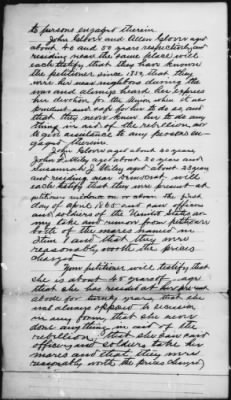 to persons engaged therein.
John Elbors and Allen Glover aged
about 40 and 50 years respectively, and
residing near the same place will
each testify that they have known
the petitioner since 1859 that they
were her near neighbors during the
war and always heard her express
her devotion for the Union when it was
prudent and safe for her to do so and
that they never knew her to do any
thing in aid of the rebellion nor
to give assistance to any persons en-
gaged therein.
John Glover aged about 20 years,
John J. Utley aged about 20 years and
Susannah J. Utley aged about 23 years
and residing near Somerville will
each testify that they were present at
petitioners residence on or about the first
day of April 1865 and saw officers
and soldiers of the United States ar-
my take and remove from petitioner
both of the mares named in
Item 1 and that they were
reasonably worth the prices
charged
Your petitioner will testify, that
she is about 45 years of age
that she has resided at her present
abode for twenty years, that she
was always opposed to secession
in any form, that she never
done anything in aid of the
rebellion, that she saw said
officers and soldiers take her
mares and that they were
reasonably worth the prices charged,